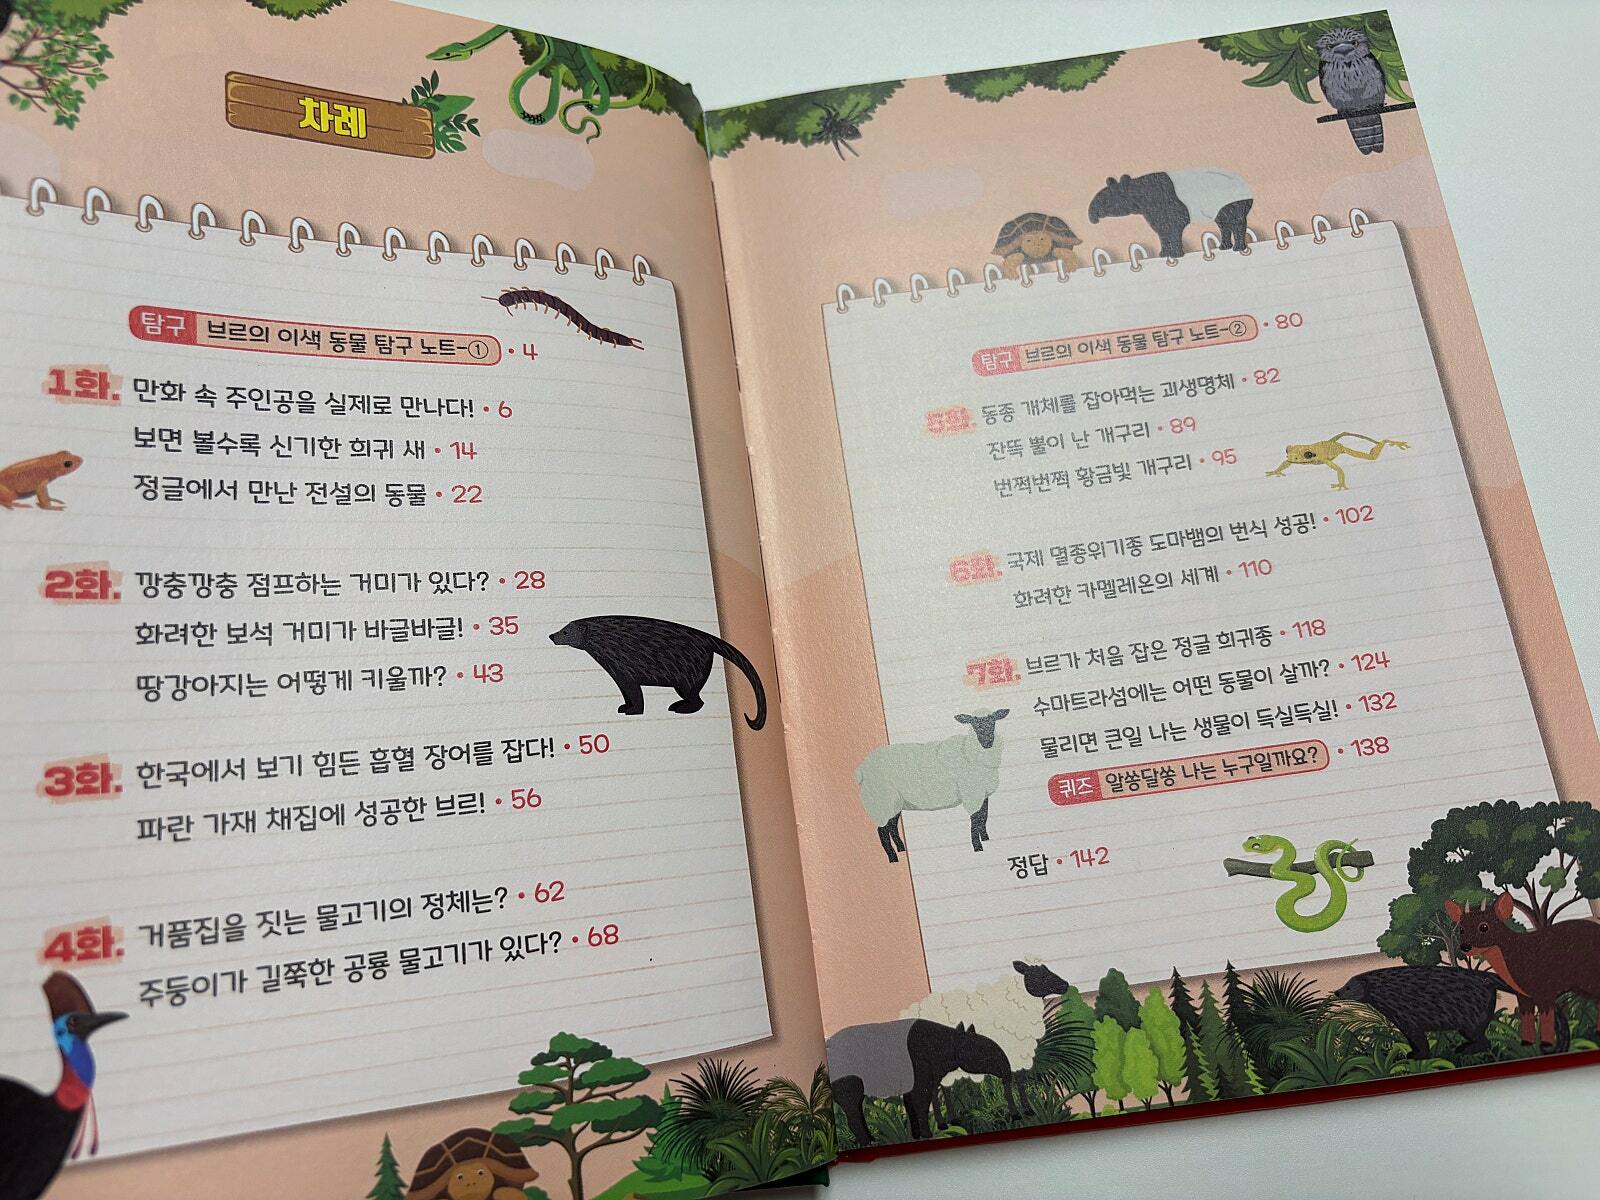 차례
탐구 브르의 이색 동물 탐구 노트-① • 4
1화. 만화 속 주인공을 실제로 만나다! • 6
보면 볼수록 신기한 희귀 새 • 14
정글에서 만난 전설의 동물 • 22
2화. 깡충깡충 점프하는 거미가 있다? • 28
화려한 보석 거미가 바글바글! • 35
땅강아지는 어떻게 키울까? • 43
3화. 한국에서 보기 힘든 흡혈 장어를 잡다! • 50
파란 가재 채집에 성공한 브르! • 56
4화. 거품집을 짓는 물고기의 정체는? • 62
주둥이가 길쭉한 공룡 물고기가 있다? • 68
탐구 브르의 이색 동물 탐구 노트-② • 80
5화. 동종 개체를 잡아먹는 괴생명체 • 82
잔뜩 뿔이 난 개구리 • 89
번쩍번쩍 황금빛 개구리 • 95
6화. 국제 멸종위기종 도마뱀의 번식 성공! • 102
화려한 카멜레온의 세계 • 110
7화. 브르가 처음 잡은 정글 희귀종 • 118
수마트라섬에는 어떤 동물이 살까? • 124
물리면 큰일 나는 생물이 득실득실! • 132
퀴즈 알쏭달쏭 나는 누구일까요? • 138
정답 • 142